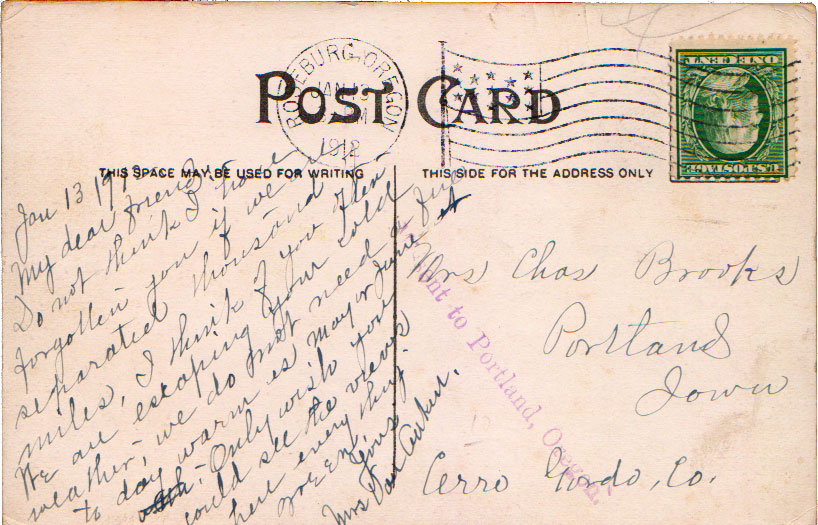 POST CARD
ROSEBURG, OREGON
JAN
1912
ONE CENT
U.S. POSTAGE
THIS SPACE MAY BE USED FOR WRITING
THIS SIDE FOR THE ADDRESS ONLY
Jan 13 191
My dear friend
Do not think I have
forgotten you if we are
separated thousand
miles, I think of you often
We are escaping your cold
weather, we do not need a fire
to day warm as May or June it
Only wish you
could see the views
here every thing
green,
Yours,
Mrs Dan
sent to Portland, Oregon.
Mrs Chas Brooks
Portland
Iowa
Cerro Gordo, Co.